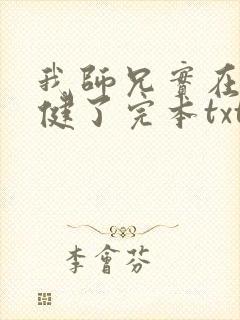 我師兄實在
健了完本txt
李會芬